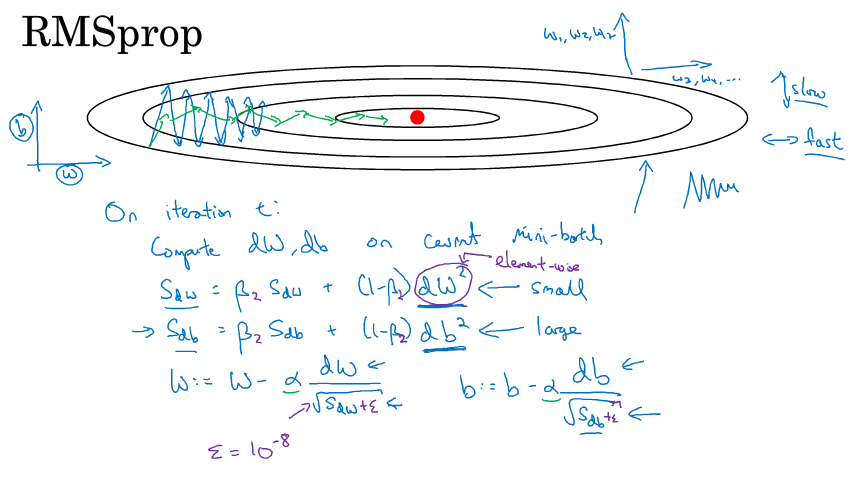 RMSprop
w₁, w₂, w₂
w₃, w₄, ...
slow
fast
b
w
On iteration t:
Compute dW, db on current mini-batch
element-wise
S_dw = β₂ S_dw + (1-β₂) dW² ← small
→ S_db = β₂ S_db + (1-β₂) db² ← large
W := W - α dW / √S_dw+ε ←
b := b - α db / √S_db+ε ←
ε = 10⁻⁸